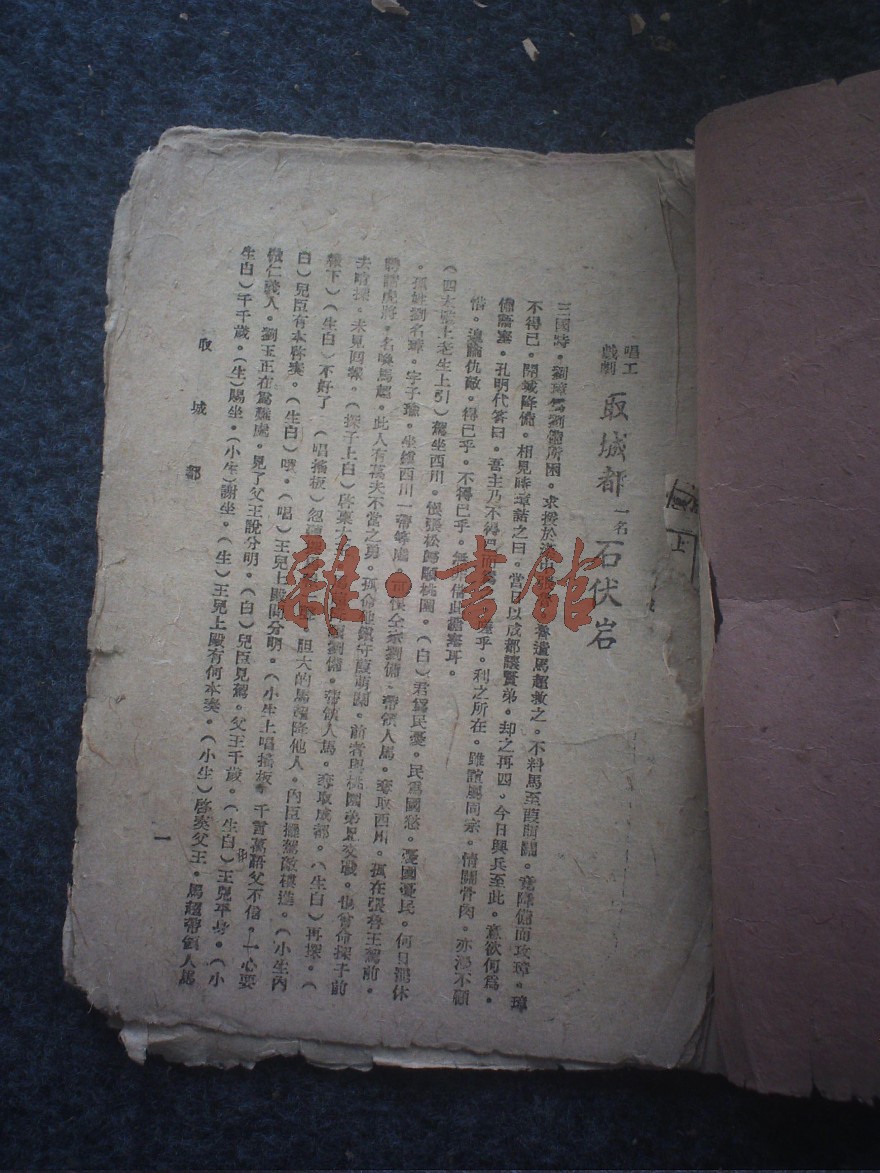 唱工
戲劇
取城都 一名 石伏岩
三國時。劉璋爲劉備所困。求援於漢中 魯遣馬超救之。不料馬至葭萌關。竟降備而攻璋。璋
不得已。開城降備。相見時璋詰之曰。當日以成都讓賢弟。却之再四。今日興兵至此。意欲何爲。
備語塞。孔明代答曰。吾主乃不得已 乎。利之所在。雖誼屬同宗。情關骨肉。亦漫不顧
惜。遑論仇敵。得已乎。不得已乎。 耳。
(四太監上老生上引)駕坐西川。恨張松歸順桃園。(白)君爲民憂。民爲國愁。憂國憂民。何日罷休
。孤姓劉名璋。字子瑜。坐鎮西川一帶等處。可恨仝宗劉備。帶領人馬。奪取西川。孤在張魯王駕前。
聘請虎將。名喚馬超。此人有萬夫不當之勇。孤命他鎮守葭萌關。前者與桃園弟兄交戰。也曾命探子前
去哨探。未見回報。(探子上白)啓稟大 劉備。帶領人馬。奪取成都。(生白)再探。(
報下)(生白)不好了。(唱搖板)忽 胆大的馬超降他人。內臣擺駕敵樓進。(小生內
白)兒臣有本啓奏。(生白)哦。(唱)王兒上殿問分明。(小生上唱搖板)千言萬語父不信。一心要
做仁義人。劉玉正在爲難處。見了父王說分明。(白)兒臣見駕。父王千歲。(生白)王兒平身。(小
生白)千千歲。(生)賜坐。(小生)謝坐。(生)王兒上殿有何本奏。(小生)啓奏父王。馬超帶領人馬
取城都
一
上
雜·書館